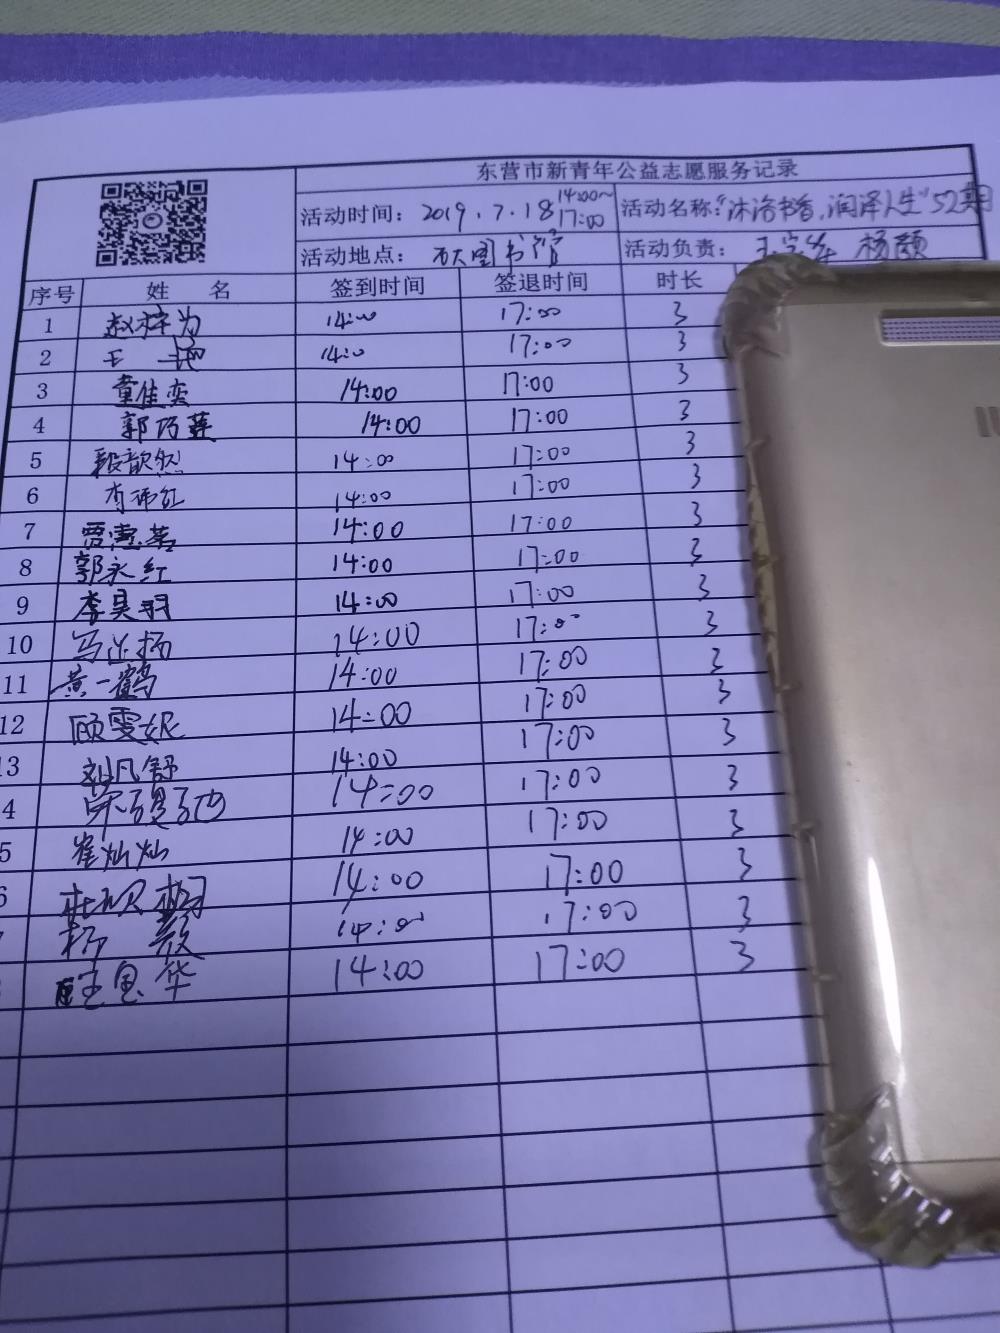 东营市新青年公益志愿服务记录
活动时间： 2019.7.18 14:00~17:00 活动名称："沐浴书香，润泽人生"52期
活动地点： 石大图书馆 活动负责： 杨颜
序号 姓 名 签到时间 签退时间 时长
1 赵梓为 14:00 17:00 3
2 王 14:00 17:00 3
3 童佳奕 14:00 17:00 3
4 郭巧莲 14:00 17:00 3
5 段歆然 14:00 17:00 3
6 14:00 17:00 3
7 贾惠茗 14:00 17:00 3
8 郭永红 14:00 17:00 3
9 李昊羽 14:00 17:00 3
10 14:00 17:00 3
11 黄一鹤 14:00 17:00 3
12 顾雯妮 14:00 17:00 3
13 刘凡舒 14:00 17:00 3
4 14:00 17:00 3
5 崔灿灿 14:00 17:00 3
6 14:00 17:00 3
杨 14:00 17:00 3
华 14:00 17:00 3